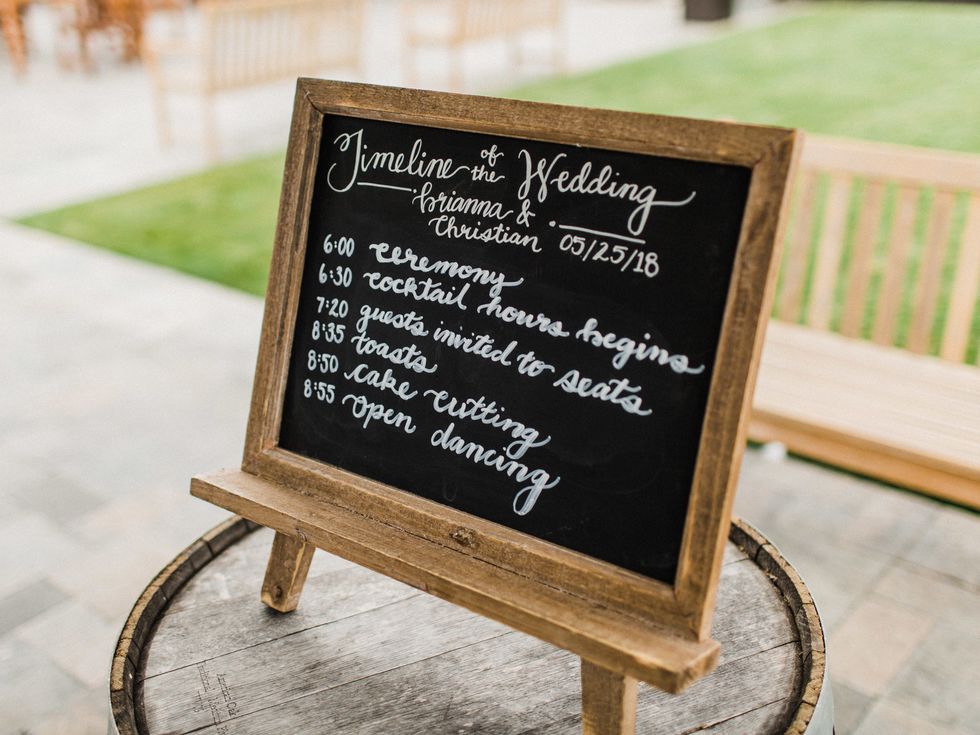 Timeline of the Wedding
brianna &
Christian 05/25/18
6:00 ceremony
6:30 cocktail hours begins
7:20 guests invited to seats
8:35 toasts
8:50 cake cutting
8:55 open dancing